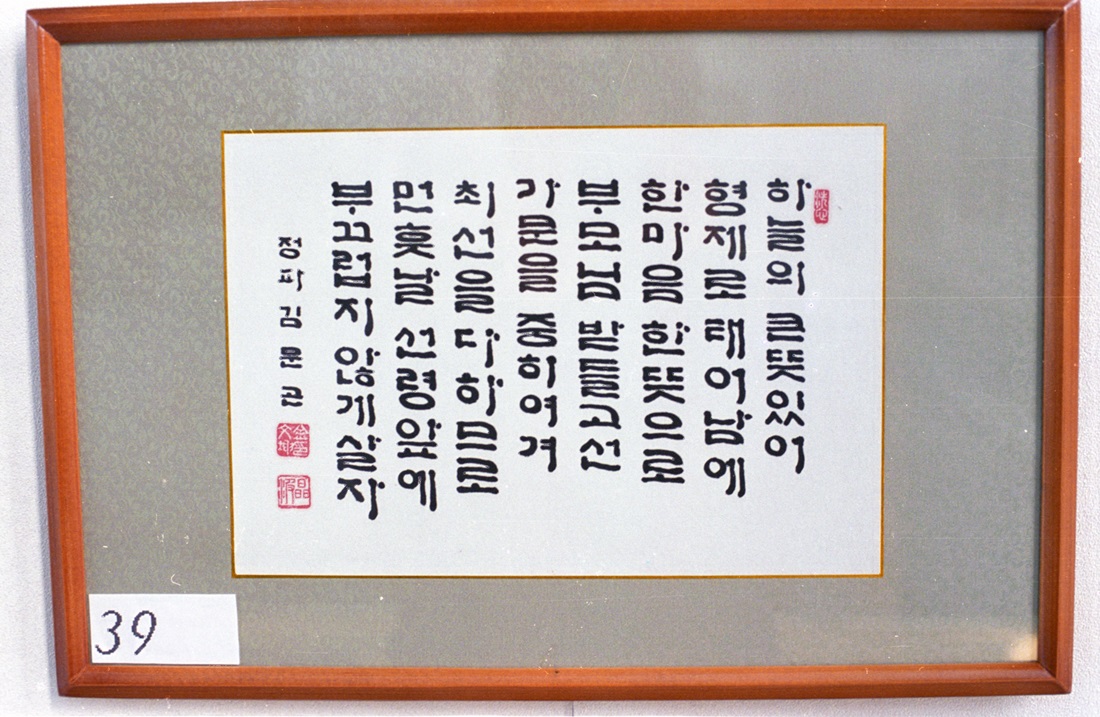 하늘의 큰뜻있어
형제로 태어남에
한마음 한뜻으로
부모님 받들고선
가문을 중히여겨
최선을 다하므로
먼훗날 선령앞에
부끄럽지 않게살자
정파 김문곤
晶波
39